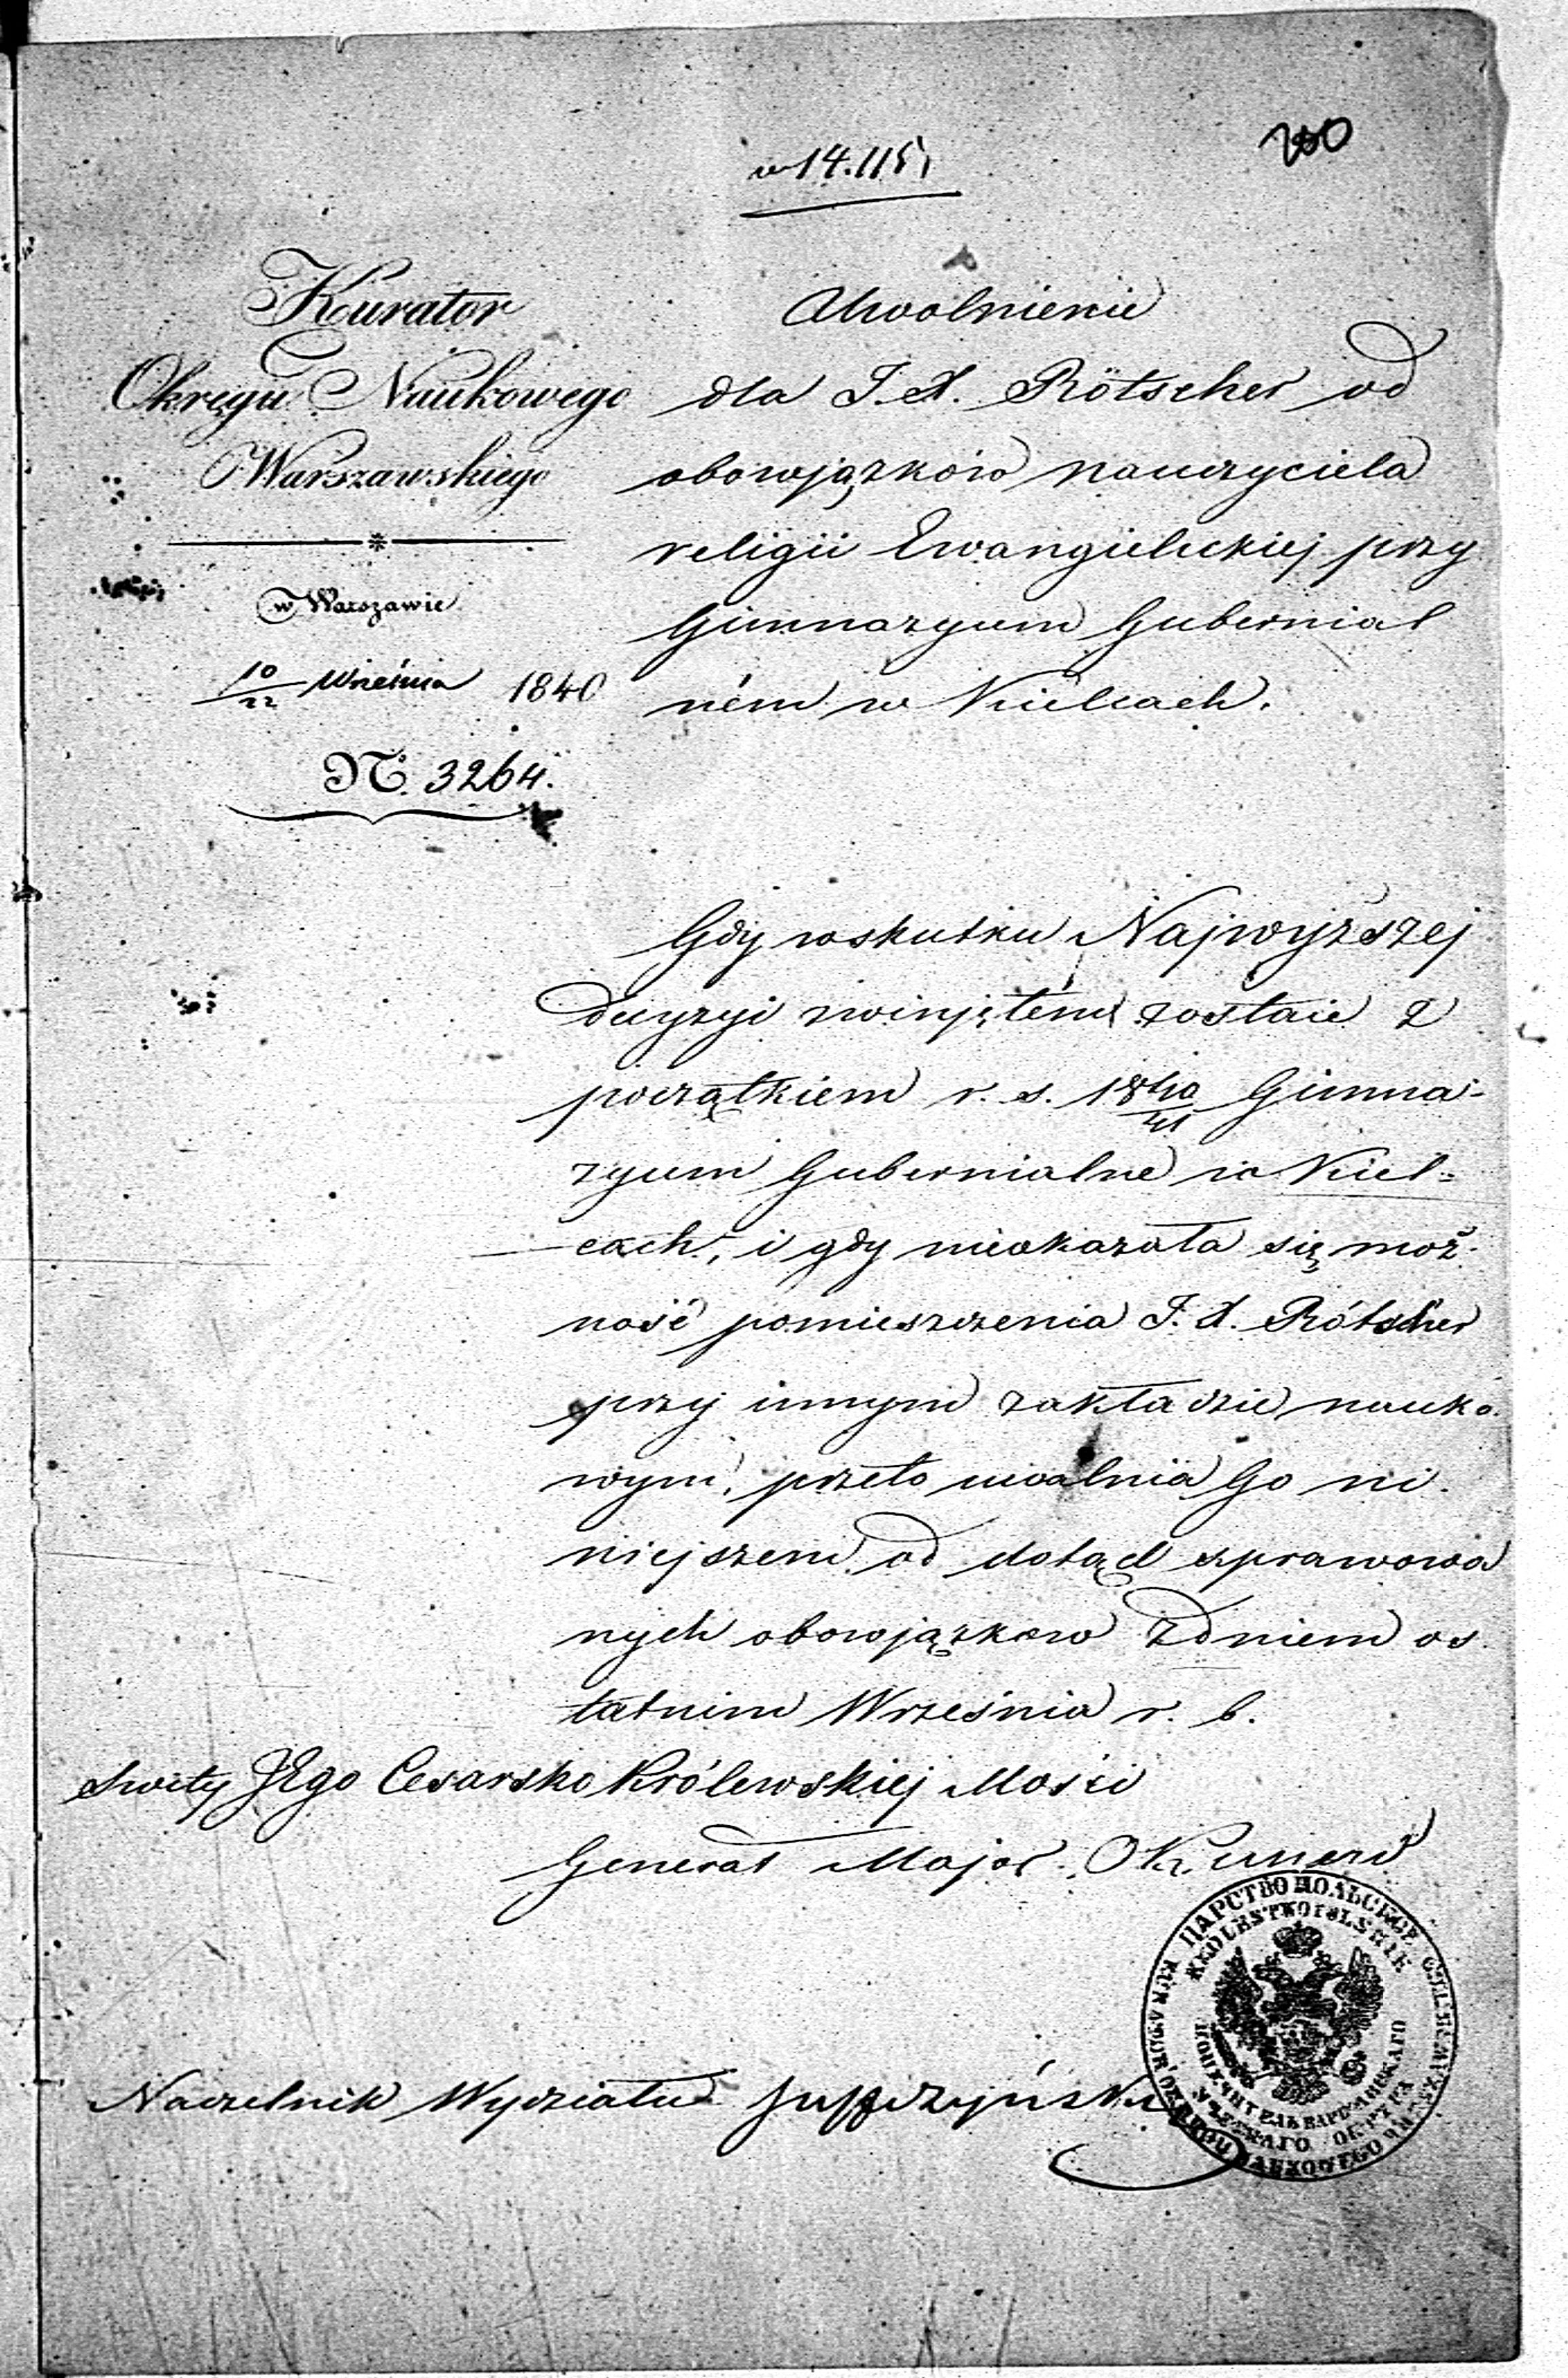 14.115
200
Kurator
Okręgu Naukowego
Warszawskiego
w Warszawie
10/22 Września 1840
N. 3264.
Uwolnienie
dla J. X. Rötscher od
obowjązków nauczyciela
religii Ewangielickiej przy
Gimnazyum Gubernial
ném w Kielcach.
Gdy wskutku Najwyższej
decyzyi zwinjętém zostaie z
początkiem r. s. 1840/41 Gimna-
zyum Gubernialne w Kiel=
cach, i gdy nieokazała się moż-
ność pomieszczenia J. X. Rötscher
przy innym zakładzie nauko-
wym, przeto uwalnia Go ni-
niejszem od dotąd sprawowa
nych obowjązków z dniem os
tatnim Września r. b.
Świty JEgo Cesarsko Królewskiej Mości
Generał Major Okunew
ЦАРСТВО ПОЛЬСКОЕ
KROLESTWO POLSKIE
ПОПЕЧИТЕЛЬ ВАРШАВСКАГО
УЧЕБНАГО ОКРУГА
KURATOR OKRĘGU NAUKOWEGO WARSZAWSKIEGO
Naczelnik Wydziału